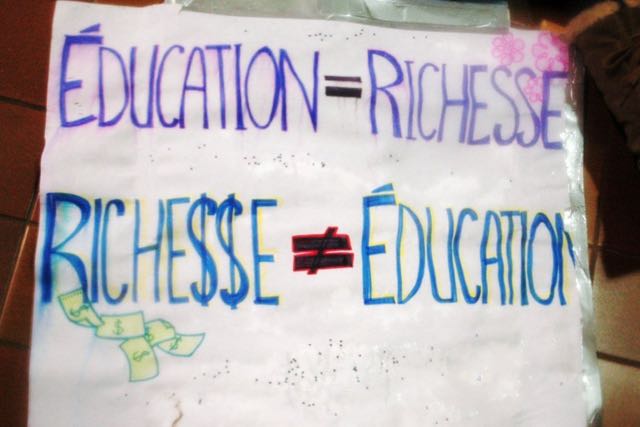 ÉDUCATION = RICHESSE
RICHE$$E ≠ ÉDUCATION